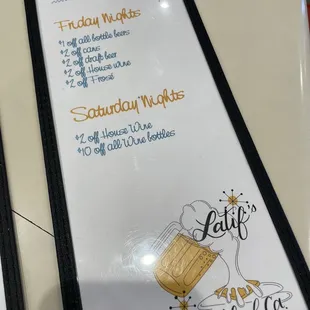 Friday Nights
$1 off all bottle beers
$2 off cans
$2 off draft beer
$2 off House wine
$2 off Frosé
Saturday Nights
$2 off House Wine
$10 off all Wine bottles
Latif's
Co.